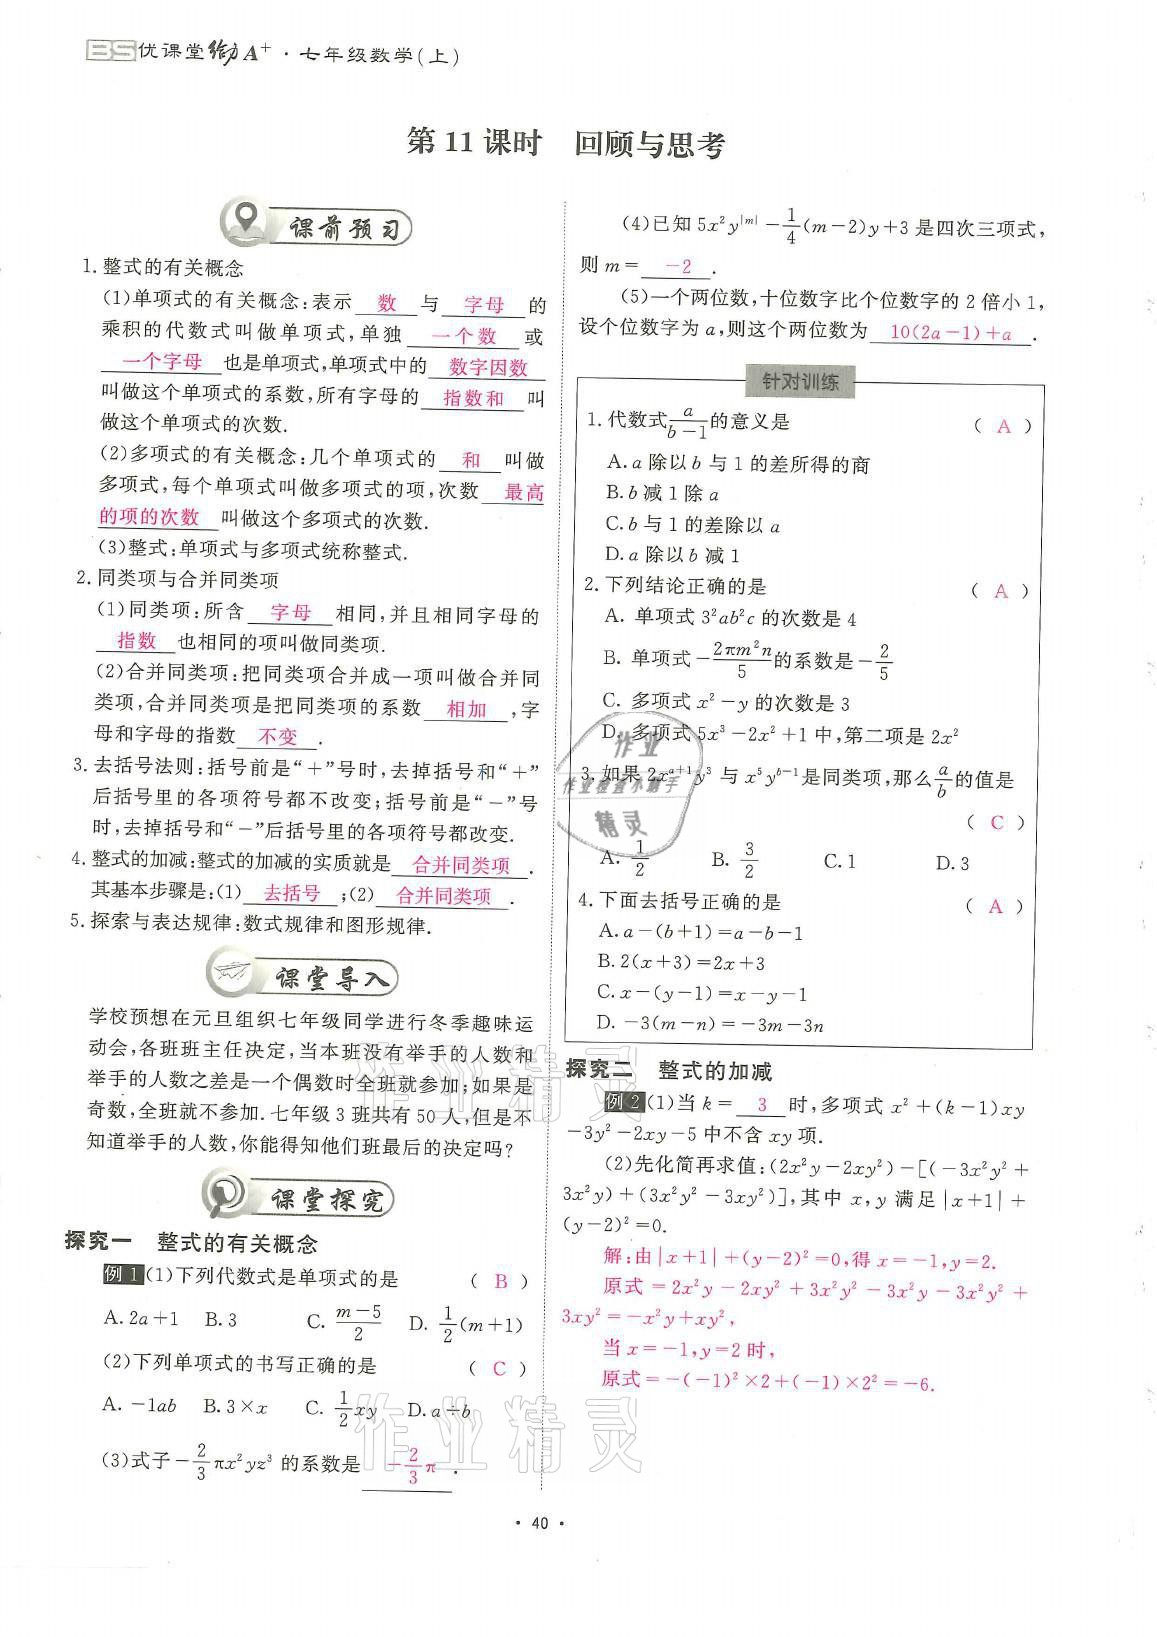 BS优课堂给力A⁺·七年级数学(上)
第11课时 回顾与思考
课前预习
1.整式的有关概念
(1)单项式的有关概念:表示 数 与 字母 的
乘积的代数式叫做单项式,单独 一个数 或
一个字母 也是单项式,单项式中的 数字因数
叫做这个单项式的系数,所有字母的 指数和 叫
做这个单项式的次数.
(2)多项式的有关概念:几个单项式的 和 叫做
多项式,每个单项式叫做多项式的项,次数 最高
的项的次数 叫做这个多项式的次数.
(3)整式:单项式与多项式统称整式.
2.同类项与合并同类项
(1)同类项:所含 字母 相同,并且相同字母的
指数 也相同的项叫做同类项.
(2)合并同类项:把同类项合并成一项叫做合并同
类项,合并同类项是把同类项的系数 相加 ,字
母和字母的指数 不变 .
3.去括号法则:括号前是“+”号时,去掉括号和“+”
后括号里的各项符号都不改变;括号前是“-”号
时,去掉括号和“-”后括号里的各项符号都改变.
4.整式的加减:整式的加减的实质就是 合并同类项 .
其基本步骤是:(1) 去括号 ;(2) 合并同类项 .
5.探索与表达规律:数式规律和图形规律.
课堂导入
学校预想在元旦组织七年级同学进行冬季趣味运
动会,各班班主任决定,当本班没有举手的人数和
举手的人数之差是一个偶数时全班就参加;如果是
奇数,全班就不参加.七年级3班共有50人,但是不
知道举手的人数,你能得知他们班最后的决定吗?
课堂探究
探究一 整式的有关概念
例1(1)下列代数式是单项式的是 ( B )
A.2a+1 B.3 C.\frac{m-5}{2} D.\frac{1}{2}(m+1)
(2)下列单项式的书写正确的是 ( C )
A.-1ab B.3×x C.\frac{1}{2}xy D.a÷b
(3)式子-\frac{2}{3}πx²yz³的系数是 -\frac{2}{3}π .
(4)已知5x²y^{|m|}-\frac{1}{4}(m-2)y+3是四次三项式,
则m= -2 .
(5)一个两位数,十位数字比个位数字的2倍小1,
设个位数字为a,则这个两位数为 10(2a-1)+a .
针对训练
1.代数式\frac{a}{b-1}的意义是 ( A )
A.a除以b与1的差所得的商
B.b减1除a
C.b与1的差除以a
D.a除以b减1
2.下列结论正确的是 ( A )
A.单项式3²ab²c的次数是4
B.单项式-\frac{2πm²n}{5}的系数是-\frac{2}{5}
C.多项式x²-y的次数是3
D.多项式5x³-2x²+1中,第二项是2x²
3.如果2x^{a+1}y³与x⁵y^{b-1}是同类项,那么\frac{a}{b}的值是
( C )
A.\frac{1}{2} B.\frac{3}{2} C.1 D.3
4.下面去括号正确的是 ( A )
A.a-(b+1)=a-b-1
B.2(x+3)=2x+3
C.x-(y-1)=x-y-1
D.-3(m-n)=-3m-3n
探究二 整式的加减
例2(1)当k= 3 时,多项式x²+(k-1)xy
-3y²-2xy-5中不含xy项.
(2)先化简再求值:(2x²y-2xy²)-[(-3x²y²+
3x²y)+(3x²y²-3xy²)],其中x,y满足|x+1|+
(y-2)²=0.
解:由|x+1|+(y-2)²=0,得x=-1,y=2.
原式=2x²y-2xy²+3x²y²-3x²y-3x²y²+
3xy²=-x²y+xy²,
当x=-1,y=2时,
原式=-(-1)²×2+(-1)×2²=-6.
作业
作业检查小助手
精灵
作业精灵
作业精灵
·40·